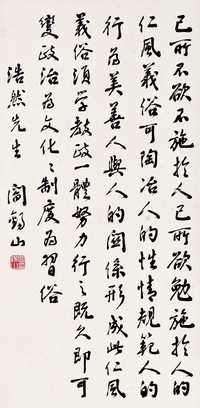 己所不欲不施於人己所欲勉施於人的
仁風義俗可陶冶人的性情規範人的
行為美善人與人的關係形成此仁風
義俗須學教政一體努力行之既久即可
變政治為文化化制度為習俗
浩然先生
閻錫山